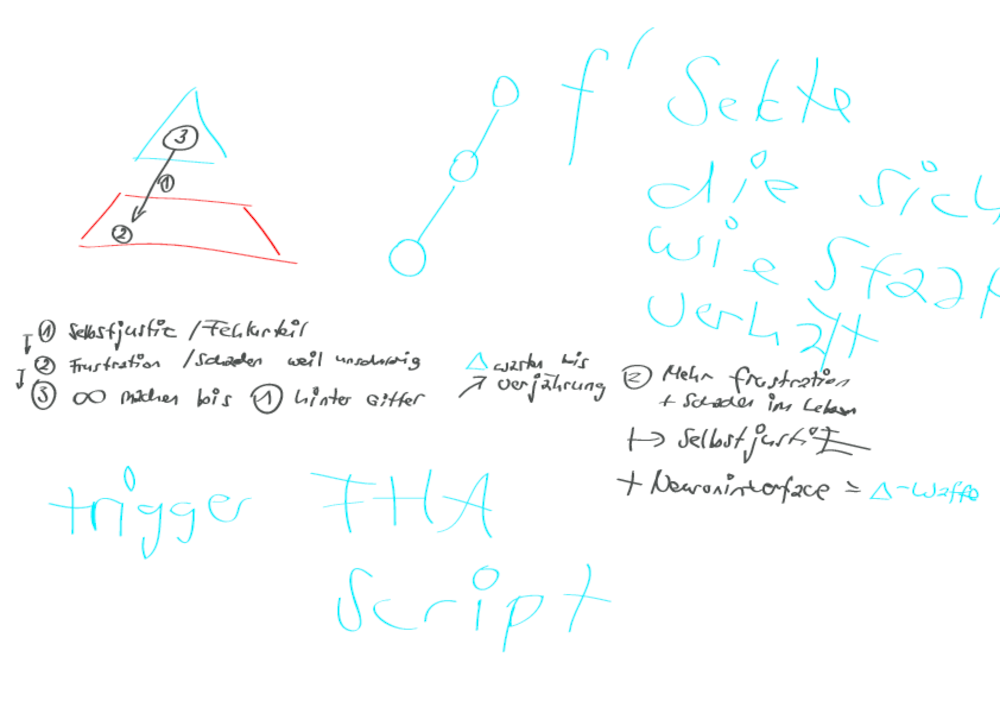 f' Sekte
die sich
wie Staat
verhält
3
1
2
1 Selbstjustiz / Fehlurteil
2 Frustration / Schaden weil unschuldig
3 ∞ machen bis 1 hinter Gitter
Δ warten bis
↗ verjährung
2 Mehr frustration
+ Schaden im Leben
↦ Selbstjustiz
+ Neuroninterface = Δ-Waffe
trigger FHA
Script